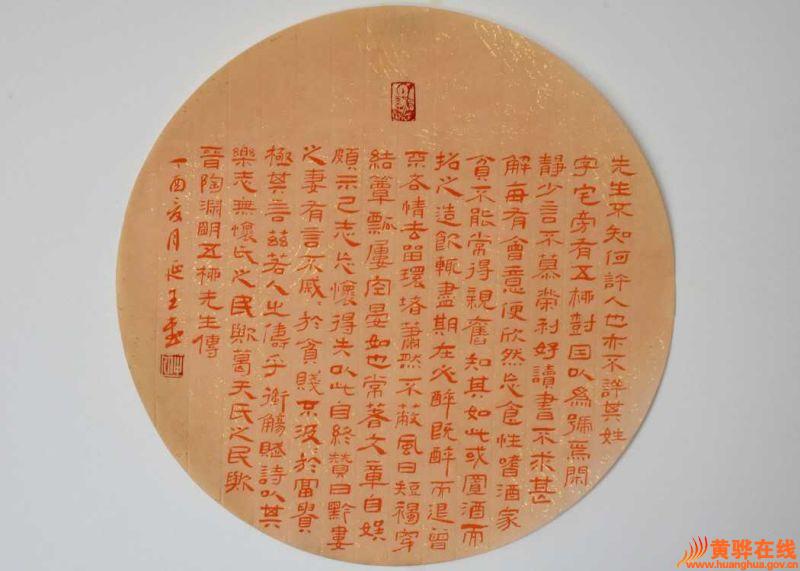 先生不知何許人也亦不詳其姓
字宅旁有五柳樹因以爲號焉閑
静少言不慕榮利好讀書不求甚
解每有會意便欣然忘食性嗜酒家
貧不能常得親舊知其如此或置酒而
招之造飲輒盡期在必醉既醉而退曾
不吝情去留環堵蕭然不蔽風日短褐穿
結簞瓢屢空晏如也常著文章自娱
頗示己志忘懷得失以此自終贊曰黔婁
之妻有言不戚〻於貧賤不汲〻於富貴
極其言兹若人之儔乎銜觴賦詩以其
樂志無懷氏之民歟葛天氏之民歟
晉陶淵明五柳先生傳
丁酉夏月延玉書
黄骅在线
www.huanghua.gov.cn